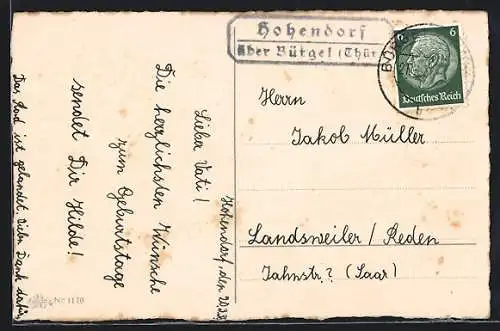 Hohendorf
über Bürgel (Thür
6 6
Deutsches Reich
BÜR
Hohendorf, den
Lieber Vati!
Die herzlichsten Wünsche
zum Geburtstage
sendet Dir Hilde!
Das Rad ist gelandet. Vielen Dank dafür.
Herrn
Jakob Müller
Landsweiler / Reden
Jahnstr.? (Saar)
Nr 1170